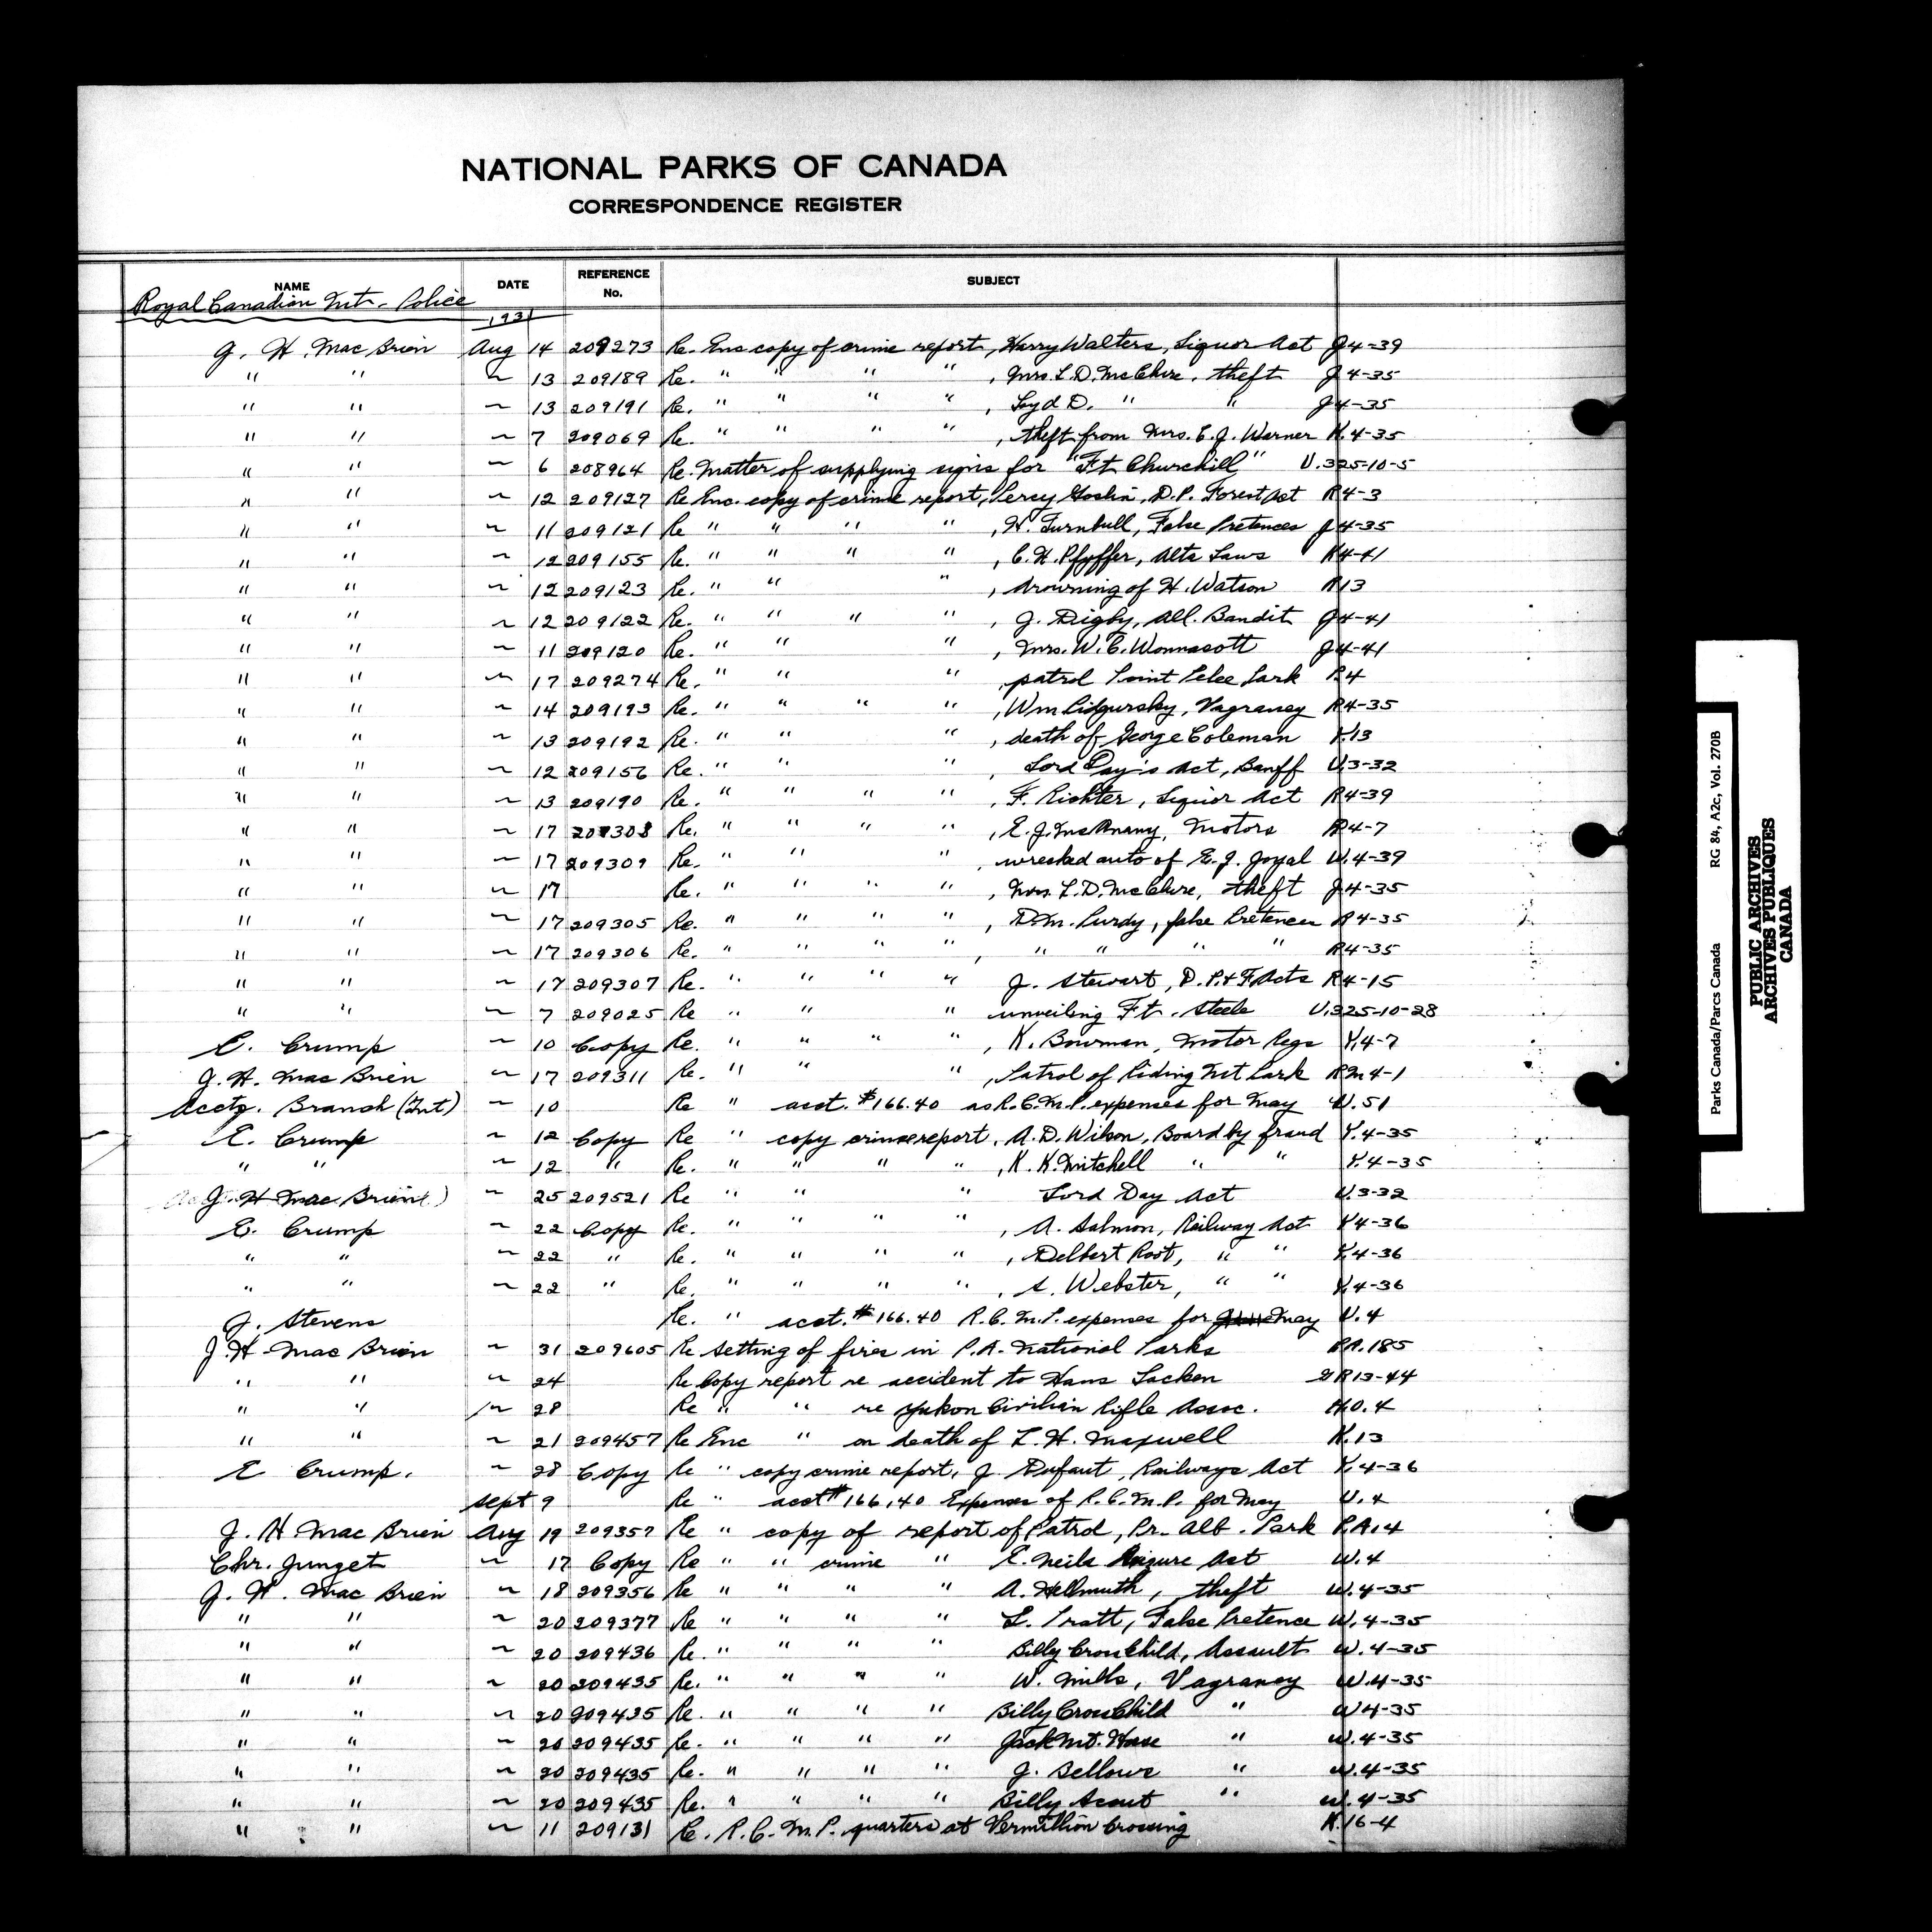 NATIONAL PARKS OF CANADA
CORRESPONDENCE REGISTER
NAME DATE REFERENCE No. SUBJECT
Royal Canadian Mt. Police
1931
J. H. MacBrien Aug 14 209273 Re. Enc copy of crime report, Harry Walters, Liquor Act J4-39
" " ~ 13 209189 Re. " " " " , Mrs. L. D. McClure, theft J4-35
" " ~ 13 209191 Re. " " " " , Loyd D. " " J4-35
" " ~ 7 209069 Re. " " " " , theft from Mrs. E. J. Warner K.4-35
" " ~ 6 208964 Re. Matter of supplying signs for "Ft Churchill" U.325-10-5
" " ~ 12 209127 Re Enc. copy of crime report, Percy Goslin, D.P. Forest Act R4-3
" " ~ 11 209121 Re " " " " , W. Turnbull, False Pretences J4-35
" " ~ 12 209155 Re. " " " " , C. H. Pfyffer, Alta Laws R4-41
" " ~ 12 209123 Re. " " " , drowning of H. Watson R13
" " ~ 12 209122 Re. " " " " , J. Digby, All. Bandit J4-41
" " ~ 11 209120 Re. " " " , Mrs. W. C. Wonnasott J4-41
" " ~ 17 209274 Re. " " " , patrol Point Pelee Park P.4
" " ~ 14 209193 Re. " " " " , Wm Pidgursky, Vagrancy R4-35
" " ~ 13 209192 Re. " " " , death of George Coleman Y.13
" " ~ 12 209156 Re. " " " , Lord Day's Act, Banff U.3-32
" " ~ 13 209190 Re. " " " " , F. Richter, Liquor Act R4-39
" " ~ 17 209308 Re. " " " " , E. J. McAnany, Motors R4-7
" " ~ 17 209309 Re. " " " , wrecked auto of E. J. Joyal W.4-39
" " ~ 17 Re. " " " " , Mrs. L. D. McClure, theft J4-35
" " ~ 17 209305 Re. " " " " , D. M. Purdy, false Pretences R4-35
" " ~ 17 209306 Re. " " " " , " " " " R4-35
" " ~ 17 209307 Re. " " " " J. Stewart, D. P. & F Acts R4-15
" " ~ 7 209025 Re " " " unveiling Ft. Steele U.325-10-28
E. Crump ~ 10 Copy Re. " " " " , K. Bowman, Motor Regs Y.4-7
J. H. MacBrien ~ 17 209311 Re. " " " , Patrol of Riding Mt Park RM4-1
Acctg. Branch (Int) ~ 10 Re " acct. $166.40 as R.C.M.P. expenses for May U.51
E. Crump ~ 12 Copy Re " copy crime report, A. D. Wilson, Board by fraud Y.4-35
" " ~ 12 " Re. " " " " , K. K. Mitchell " " Y.4-35
J. H MacBrien ~ 25 209521 Re " " " Lord Day Act U.3-32
E. Crump ~ 22 Copy Re. " " " " , A. Salmon, Railway Act Y.4-36
" " ~ 22 " Re. " " " " , Delbert Root, " " Y.4-36
" " ~ 22 " Re. " " " " , S. Webster, " " Y.4-36
J. Stevens Re. " acct. $166.40 R.C.M.P. expenses for May U.4
J. H MacBrien ~ 31 209605 Re setting of fires in P.A. National Parks P.A.185
" " ~ 24 Re Copy report re accident to Hans Lacken GR13-44
" " ~ 28 Re " " re Yukon Civilian Rifle Assoc. HO.4
" " ~ 21 209457 Re Enc " on death of L. H. Maxwell K.13
E Crump. ~ 28 Copy Re " copy crime report, J. Dufaut, Railways Act Y.4-36
Sept 9 Re " acct $166.40 Expenses of R.C.M.P. for May U.4
J. H MacBrien Aug 19 209357 Re " copy of report of Patrol, Pr. Alb. Park P.A.4
Chr. Junget ~ 17 Copy Re " " crime " E. Neils Act W.4
J. H. MacBrien ~ 18 209356 Re " " " " A. Hellmuth, theft W.4-35
" " ~ 20 209377 Re " " " " L. Pratt, False Pretence W.4-35
" " ~ 20 209436 Re. " " " " Billy CrowChild, Assault W.4-35
" " ~ 20 209435 Re. " " " " W. Mills, Vagrancy W.4-35
" " ~ 20 209435 Re. " " " " Billy CrowChild " W4-35
" " ~ 20 209435 Re. " " " " Jack Mt. Horse " W.4-35
" " ~ 20 209435 Re. " " " " J. Bellows " W.4-35
" " ~ 20 209435 Re. " " " " Billy Scout " W.4-35
" " ~ 11 209131 Re. R.C.M.P. quarters at Vermillion Crossing K.16-4
Parks Canada/Parcs Canada RG 84, A2c, Vol. 270B
PUBLIC ARCHIVES
ARCHIVES PUBLIQUES
CANADA